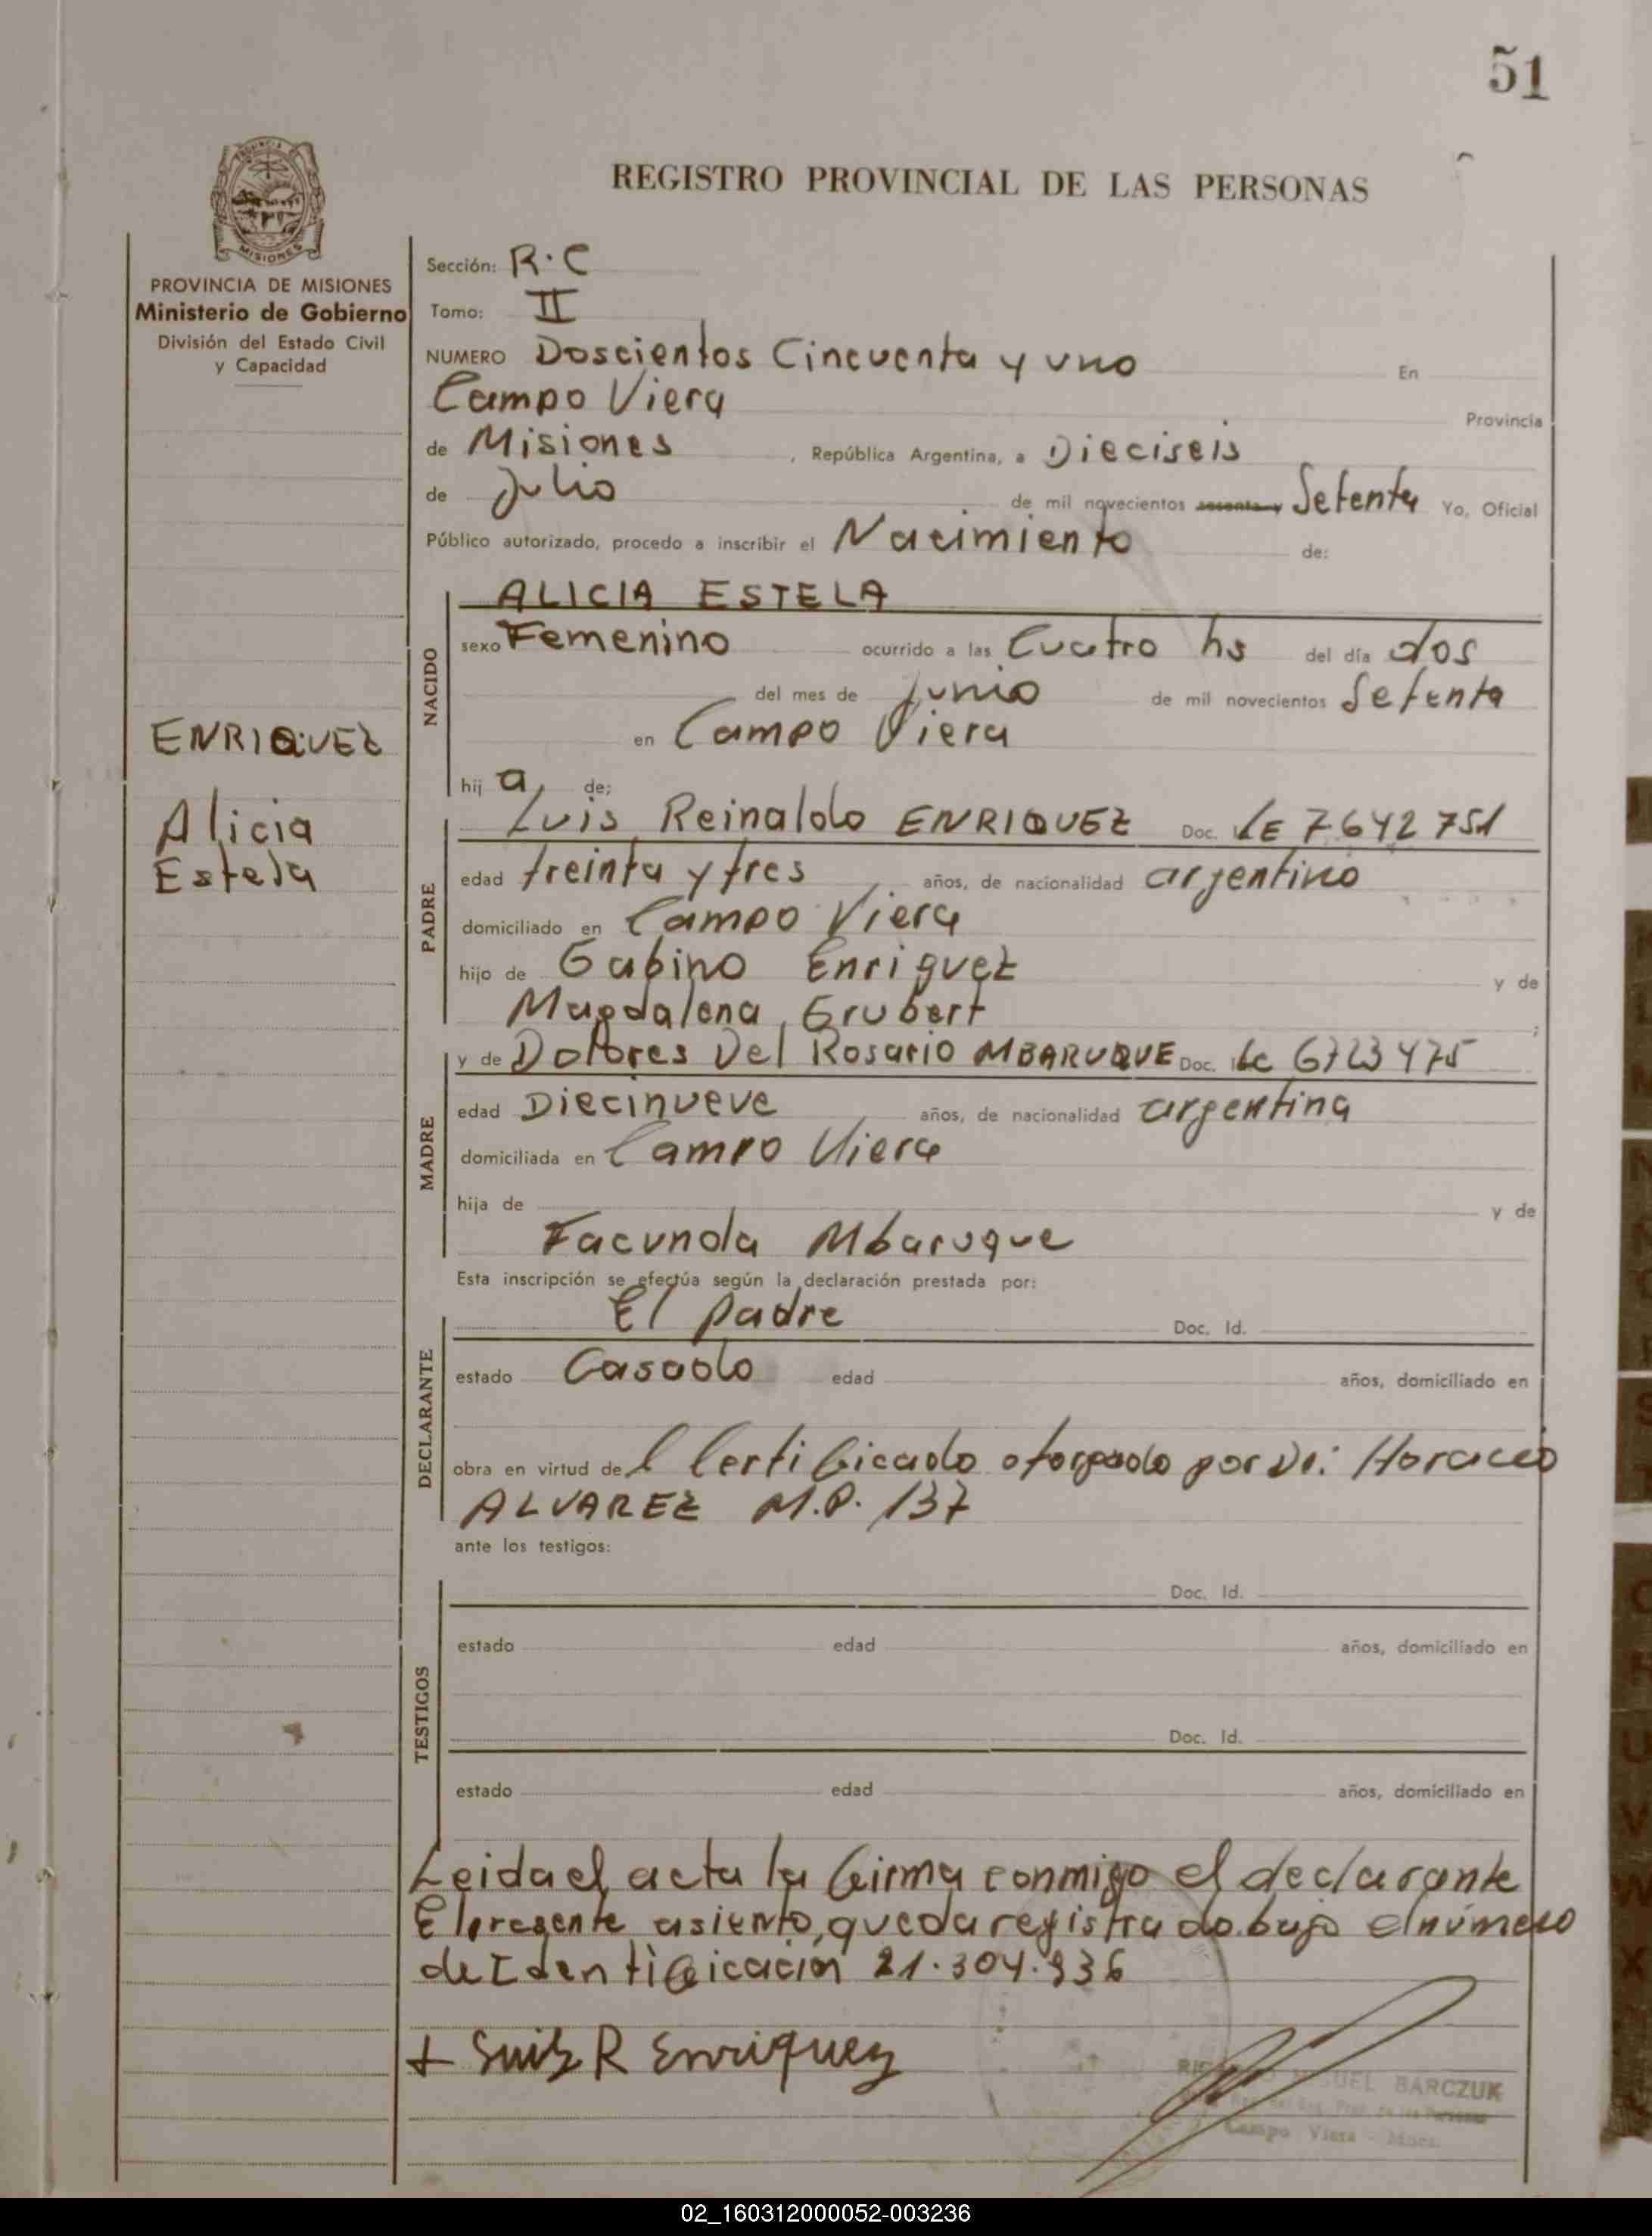 51
REGISTRO PROVINCIAL DE LAS PERSONAS
PROVINCIA DE MISIONES
Ministerio de Gobierno
División del Estado Civil
y Capacidad
Sección: R.C
Tomo: II
NUMERO Doscientos Cincuenta y uno En
Campo Viera Provincia
de Misiones , República Argentina, a Dieciseis
de Julio de mil novecientos sesenta y Setenta Yo, Oficial
Público autorizado, procedo a inscribir el Nacimiento de:
ENRIQUEZ
Alicia
Estela
NACIDO
ALICIA ESTELA
sexo Femenino ocurrido a las Cuatro hs del día dos
del mes de junio de mil novecientos Setenta
en Campo Viera
hij a de:
PADRE
Luis Reinaldo ENRIQUEZ Doc. LE 7642751
edad treinta y tres años, de nacionalidad argentino
domiciliado en Campo Viera
hijo de Gabino Enriquez y de
Magdalena Grubert
MADRE
y de Dolores Del Rosario MBARUQUE Doc. Lc 6723475
edad Diecinueve años, de nacionalidad argentina
domiciliada en Campo Viera
hija de y de
Facunda Mbaruque
Esta inscripción se efectúa según la declaración prestada por:
DECLARANTE
El padre Doc. Id.
estado Casado edad años, domiciliado en
obra en virtud de l Certificado otorgado por Dr: Horacio
ALVAREZ M.P. 137
ante los testigos:
TESTIGOS
Doc. Id.
estado edad años, domiciliado en
Doc. Id.
estado edad años, domiciliado en
Leida el acta la firma conmigo el declarante
El presente asiento, queda registrado bajo el número
de Identificación 21.304.936
+ Luis R Enriquez
MIGUEL BARCZUK
Campo Viera - Mnes.
02_160312000052-003236